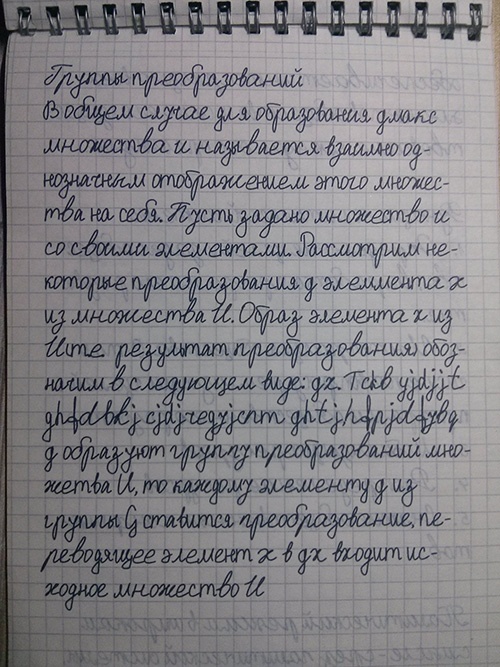 Группы преобразований
В общем случае для образования дмакс
множества и называется взаимно од-
нозначным отображением этого множес-
тва на себя. Пусть задано множество и
со своими элементами. Рассмотрим не-
которые преобразования g элемлента x
из множества U. Образ элемента x из
U(те результат преобразования) обоз-
начим в следующем виде: gx. Tckb yjdjjt
ghfdbkj cjdjчедуjcnm ghtjhfpjdфувд
g образуют группу преобразований мно-
жетва U, то каждому элементу g из
группы G ставится преобразование, пе-
реводящее элемент x в gx входит ис-
ходное множество U